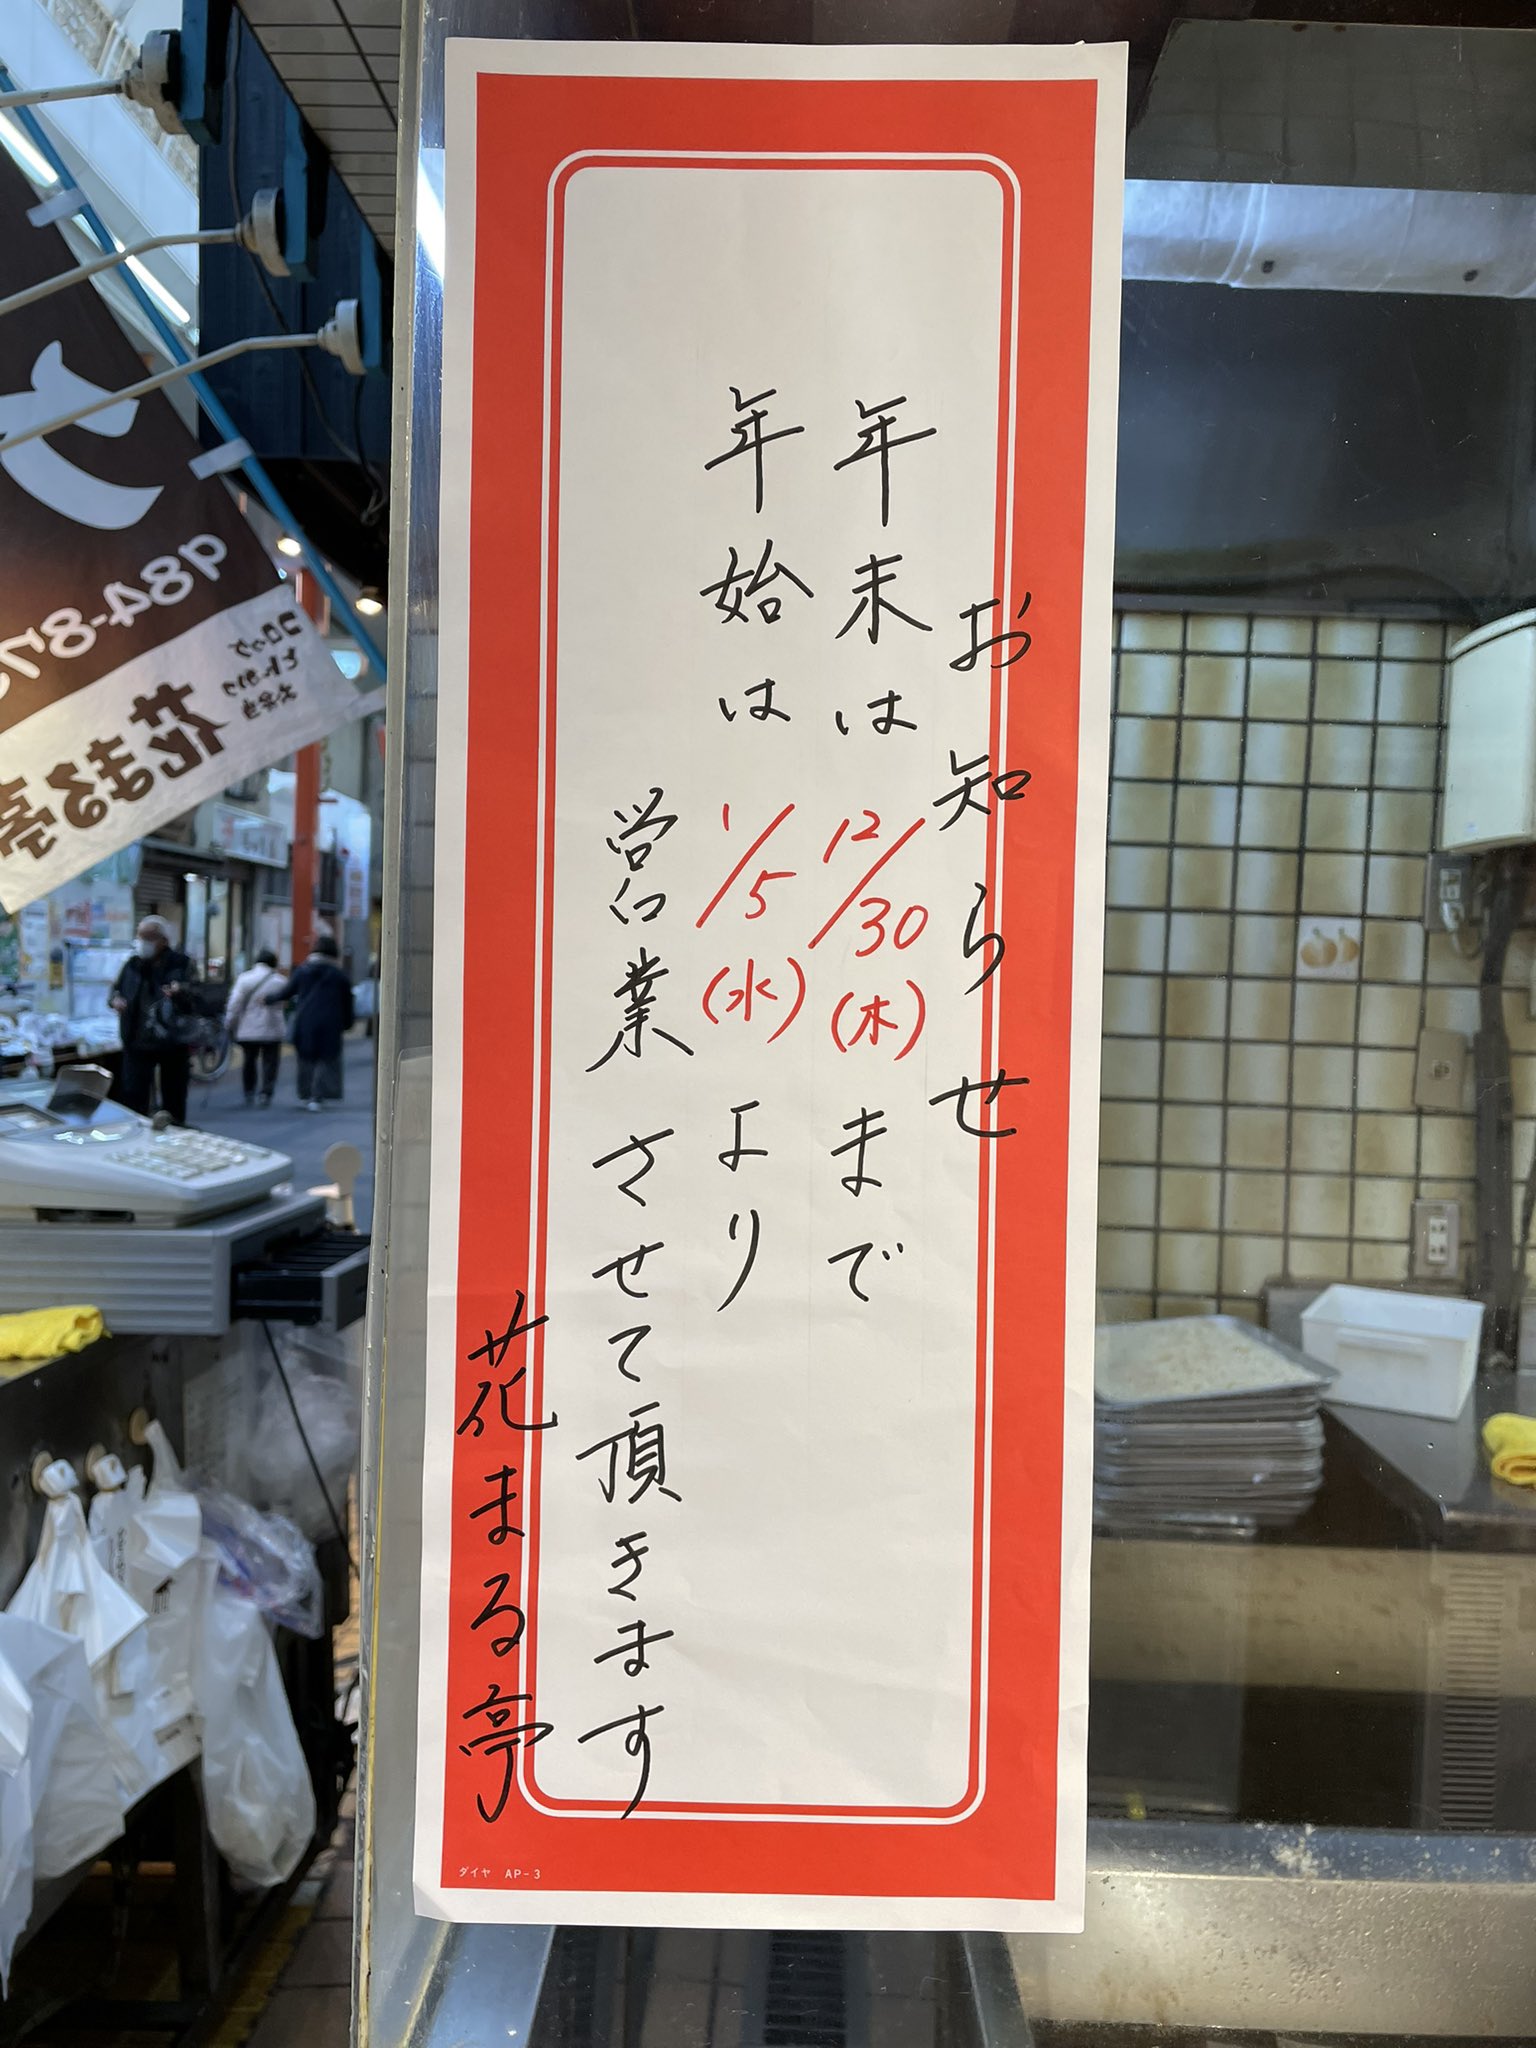 お知らせ
年末は12/30(木)まで
年始は1/5(水)より
営業させて頂きます
花まる亭
ダイヤ AP-3
984-87
コロッケ
とんかつ
お弁当
花まる亭